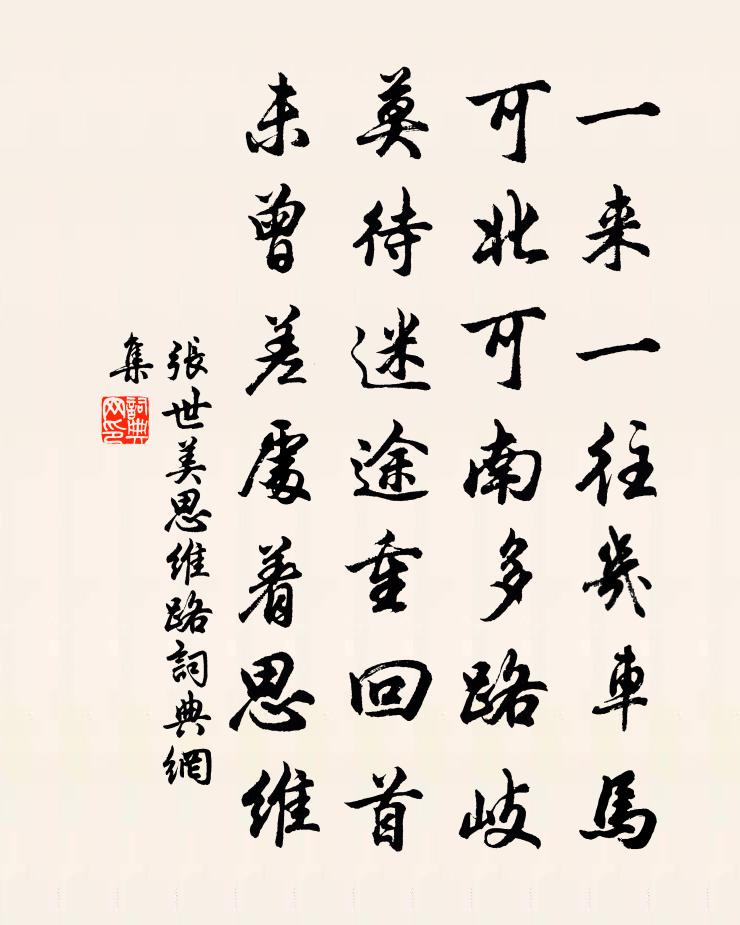 一来一往幾車馬
可北可南多路岐
莫待迷途重回首
未曾差處着思維
張世美思維路詞典網
集
詞典
网印